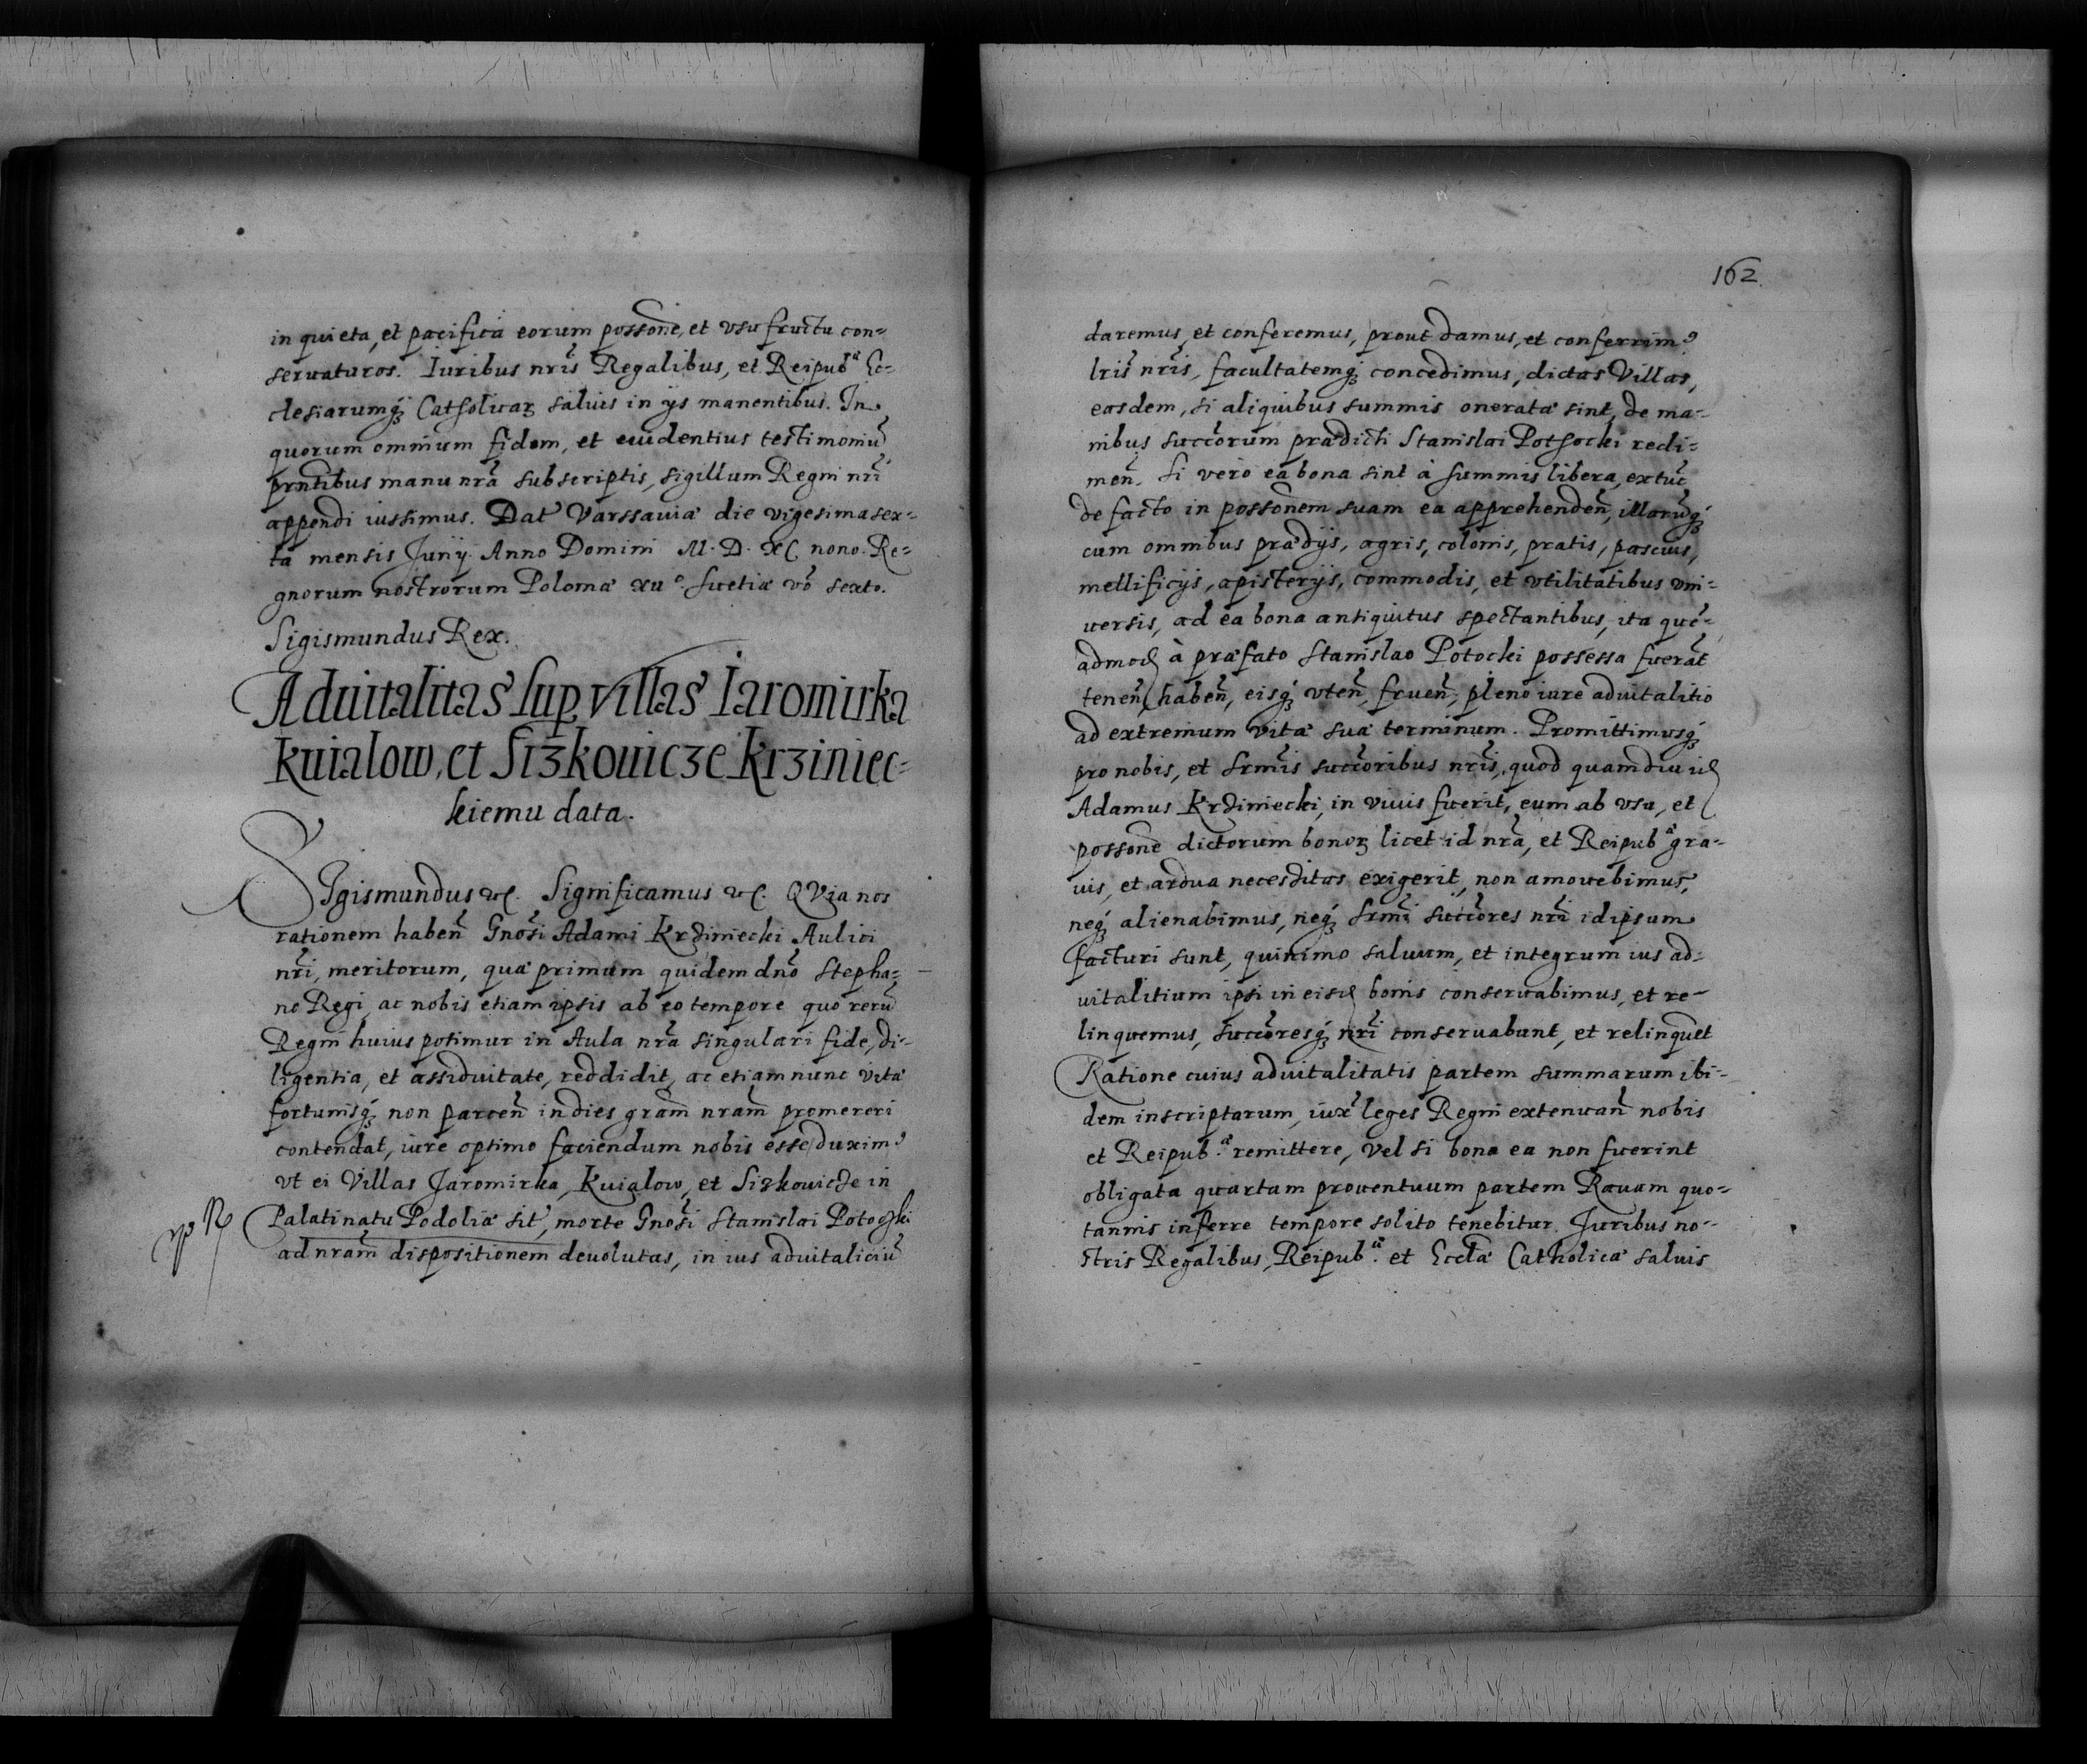 in quieta, et pacifica eorum possone, et vsu fructu con=
seruaturos. Iuribus nris Regalibus, et Reipub.ae Ec=
clesiarumq3 Catholicaꝝ saluis in ys manentibus. In
quorum omnium fidem, et euidentius testimoniũ
prntibus manu nrã subscriptis, sigillum Regni nri
appendi iussimus. Dat Varssauiæ die vigesima sex=
ta mensis Juny. Anno Domini M. D. XC nono. Re=
gnorum nostrorum Poloniæ xiiº. Suetiæ vo sexto.
Sigismundus Rex.
Aduitalitas sup villas Iaromirka
Kuialow, et Sizkouicze Krziniec=
kiemu data.
SIgismundus etc. Significamus etc. QVia nos
rationem habeñ Gnosi Adami Krziniecki Aulici
nri, meritorum, quæ primum quidem dno Stepha=
no Regi, ac nobis etiam ipsis ab eo tempore quo rerũ
Regni huius potimur in Aula nrã singulari fide, di=
ligentia, et assiduitate, reddidit, ac etiam nunc vitæ
fortunisq3 non parceñ in dies gram nram promereri
contendat, iure optimo faciendum nobis esse duxim9
vt ei Villas Jaromirka, Kuialow, et Sizkouicze in
Palatinatu Podoliæ sit, morte Gnosi Stanislai Potoczki
ad nram dispositionem deuolutas, in ius aduitaliciũ
162.
daremus, et conferemus, prout damus, et conferrim9
lris nris, facultatemq3 concedimus, dictas Villas,
easdem, si aliquibus summis oneratæ sint, de ma=
nibus succorum prædicti Stanislai Pothocki redi=
meñ. Si vero ea bona sint à summis libera, ex tũc
de facto in possonem suam ea apprehendeñ, illorũq3
cum omnibus prædijs, agris, colonis, pratis, pascuis,
mellificijs, apisterijs, commodis, et vtilitatibus vni=
uersis, ad ea bona antiquitus spectantibus, ita què=
admod à præfato Stanislao Potocki possessa fuerãt
teneñ, habeñ, eisq3 vteñ, frueñ, pleno iure aduitalitio
ad extremum vitæ suæ terminum. Promittimusq3
pro nobis, et Srmis succoribus nris, quod quamdiu id
Adamus Krziniecki, in viuis fuerit, eum ab vsu, et
possone dictorum bonoꝝ licet id nrã, et Reipub.ae gra=
uis, et ardua necessitas exigerit, non amouebimus,
neq3 alienabimus, neq3 Srmi succores nri idipsum
facturi sunt, quinimo saluum, et integrum ius ad=
uitalitium ipsi in eisd bonis conseruabimus, et re=
linquemus, succoresq3 nri conseruabunt, et relinquet
Ratione cuius aduitalitatis partem summarum ibi=
dem inscriptarum, iux leges Regni extenuañ nobis
et Reipub.ae remittere, vel si bona ea non fuerint
obligata quartam prouentuum partem Rauam quo=
tannis inferre tempore solito tenebitur. Juribus no=
stris Regalibus, Reipub.ae et Ecclæ Catholicæ saluis